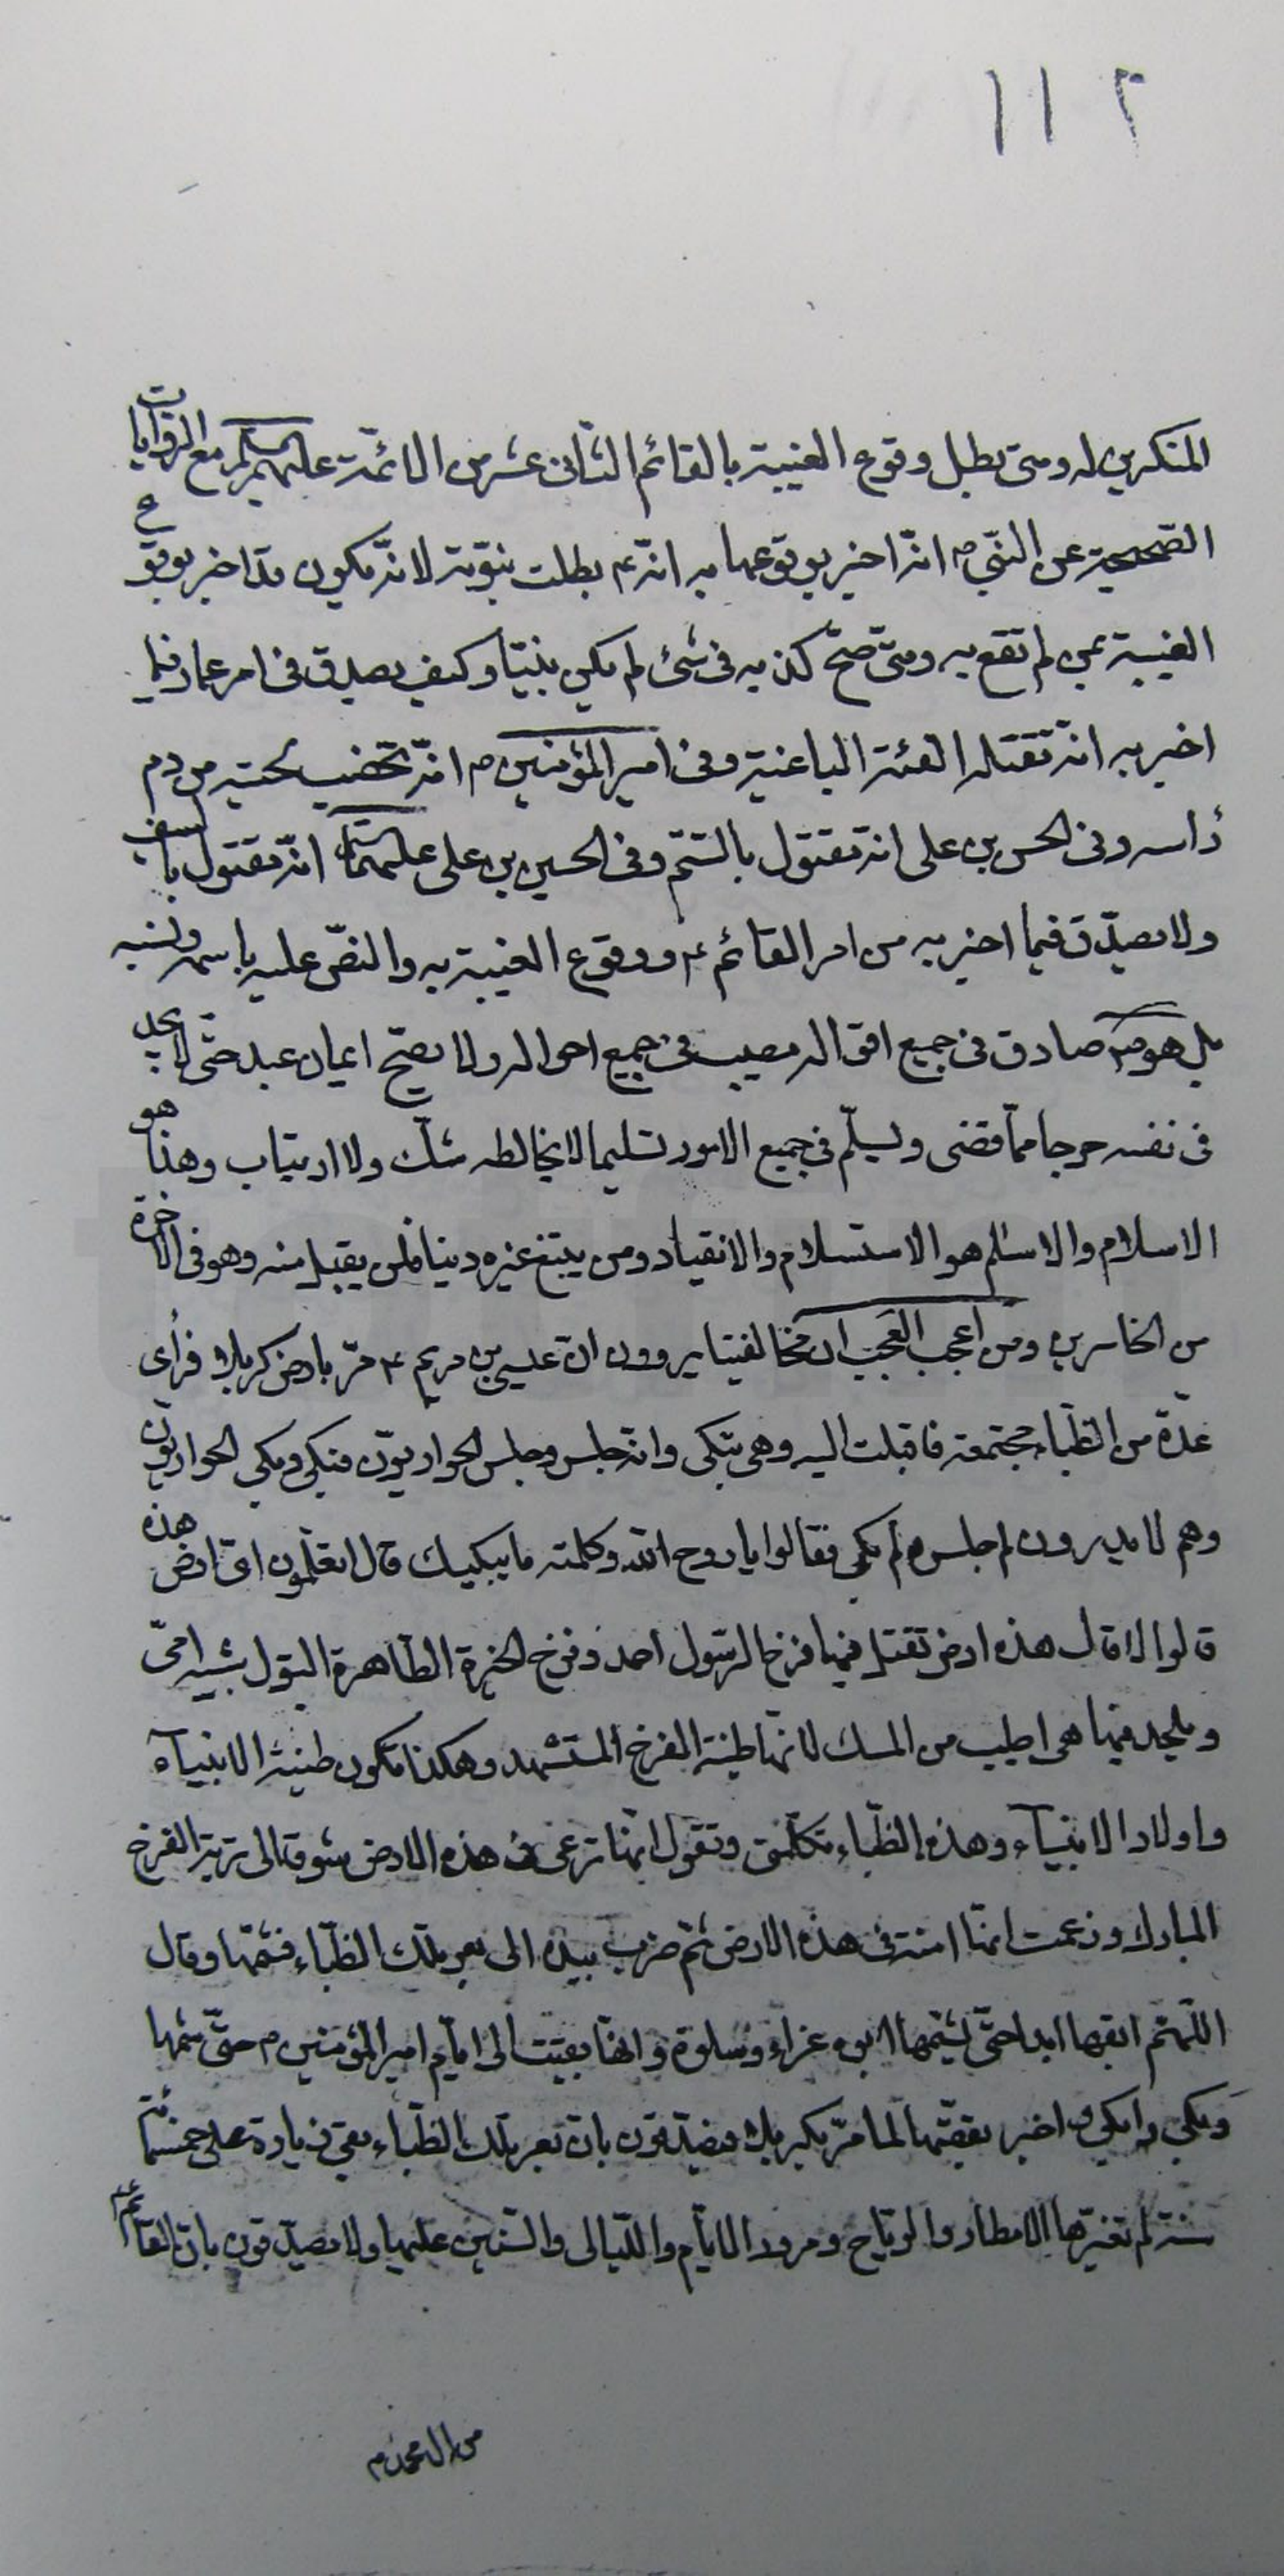 ١١٢
المنكرين له ومتى بطل وقوع الغيبة بالقائم الثّانى عشر من الائمّة عليهم السلم مع الرّوايات
الصّحيحة عن النّبىّ ص انّه اخبر بوقوعها به انّه ع بطلت نبوّته لانّه يكون قد اخبر بوقوع
الغيبة بمن لم تقع به ومتى صحّ كذبه فى شئ لم يكن نبيّا وكيف يصدق فى امر عمار فيما
اخبر به انّه تقتله الفئة الباغية وفى امير المؤمنين ص انّه تخضب لحيته من دم
رأسه وفى الحسن بن على انه مقتول بالسّمّ وفى الحسين بن على عليهما السلم انّه مقتول بالسيف
ولا يصدّق فيما اخبر به من امر القائم ع ووقوع الغيبة به والنصّ عليه باسمه ونسبه
بل هو ص صادق فى جميع اقواله مصيب فى جميع احواله ولا يصحّ ايمان عبد حتّى لا يجد
فى نفسه حرجا ممّا قضى ويسلّم فى جميع الامور تسليما لا يخالطه شكّ ولا ارتياب وهذا هو
الاسلام والاسلم هو الاستسلام والانقياد ومن يبتغ غيره دينا فلن يقبل منه وهو فى الاخرة
من الخاسرين ومن اعجب العجب ان مخالفينا يروون انّ عيسى بن مريم ع مرّ بارض كربلا فرأى
عدّة من الظّباء مجتمعة فاقبلت اليه وهى تبكى وانّه جلس وجلس الحواريّون فبكى وبكى الحواريّون
وهم لا يدرون لم جلس ولم بكى فقالوا يا روح الله وكلمته ما يبكيك قال اتعلمون اىّ ارض هذه
قالوا لا قال هذه ارض تقتل فيها فرخ الرّسول احمد وفرخ الحرّة الطّاهرة البتول شبيه امّى
ويلحد فيها هى اطيب من المسك لانّها طينة الفرخ المستشهد وهكذا تكون طينة الانبيآء
واولاد الانبيآء وهذه الظّباء تكلّمنى وتقول انّها ترعى فى هذه الارض شوقا الى تربة الفرخ
المبارك وزعمت انّها امنة فى هذه الارض ثمّ ضرب بيده الى بعر تلك الظّباء فشمّها وقال
اللّهمّ ابقها ابدا حتّى يشمّها ابوه عزاء وسلوة وانّها بقيت الى ايّام امير المؤمنين ص حتّى شمّها
وبكى وابكى واخبر بقصّتها لما مرّ بكربلا فيصدّقون بانّ بعر تلك الظّباء بقى زيادة على خمسمائة
سنة لم تغيّرها الامطار والرّياح ومرور الايّام واللّيالى والسّنين عليها ولا يصدّقون بانّ القائم
من ال محمد ص